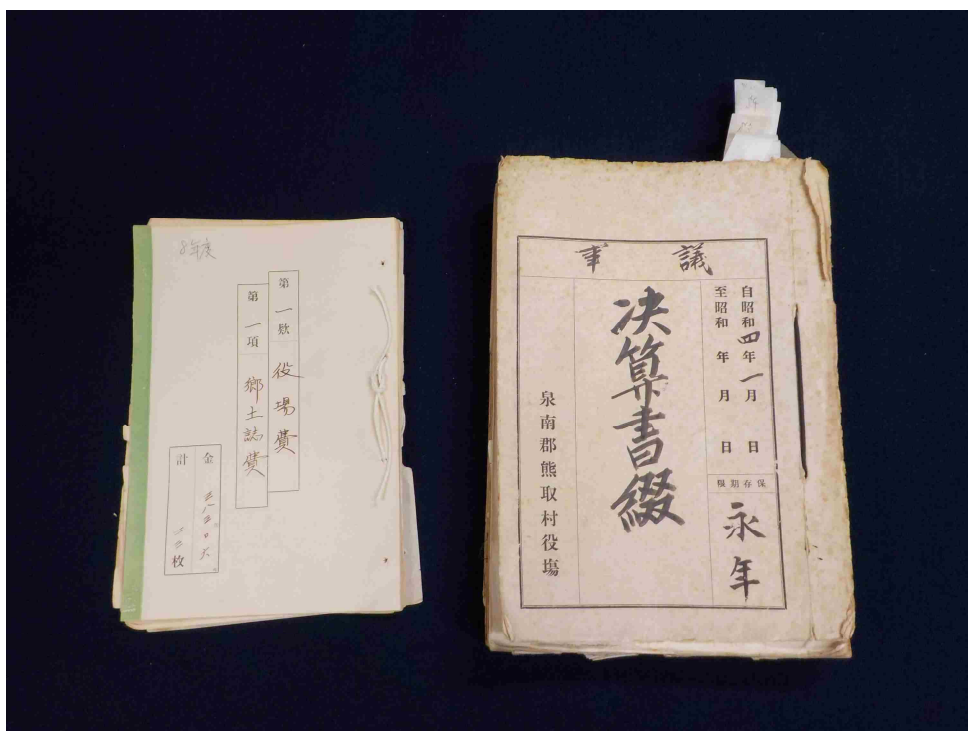 8年度
第一款 役場費
第一項 郷土誌費
金
計 枚
議事
自昭和四年一月 日
至昭和 年 月 日
保存期限
永年
決算書綴
泉南郡熊取村役場